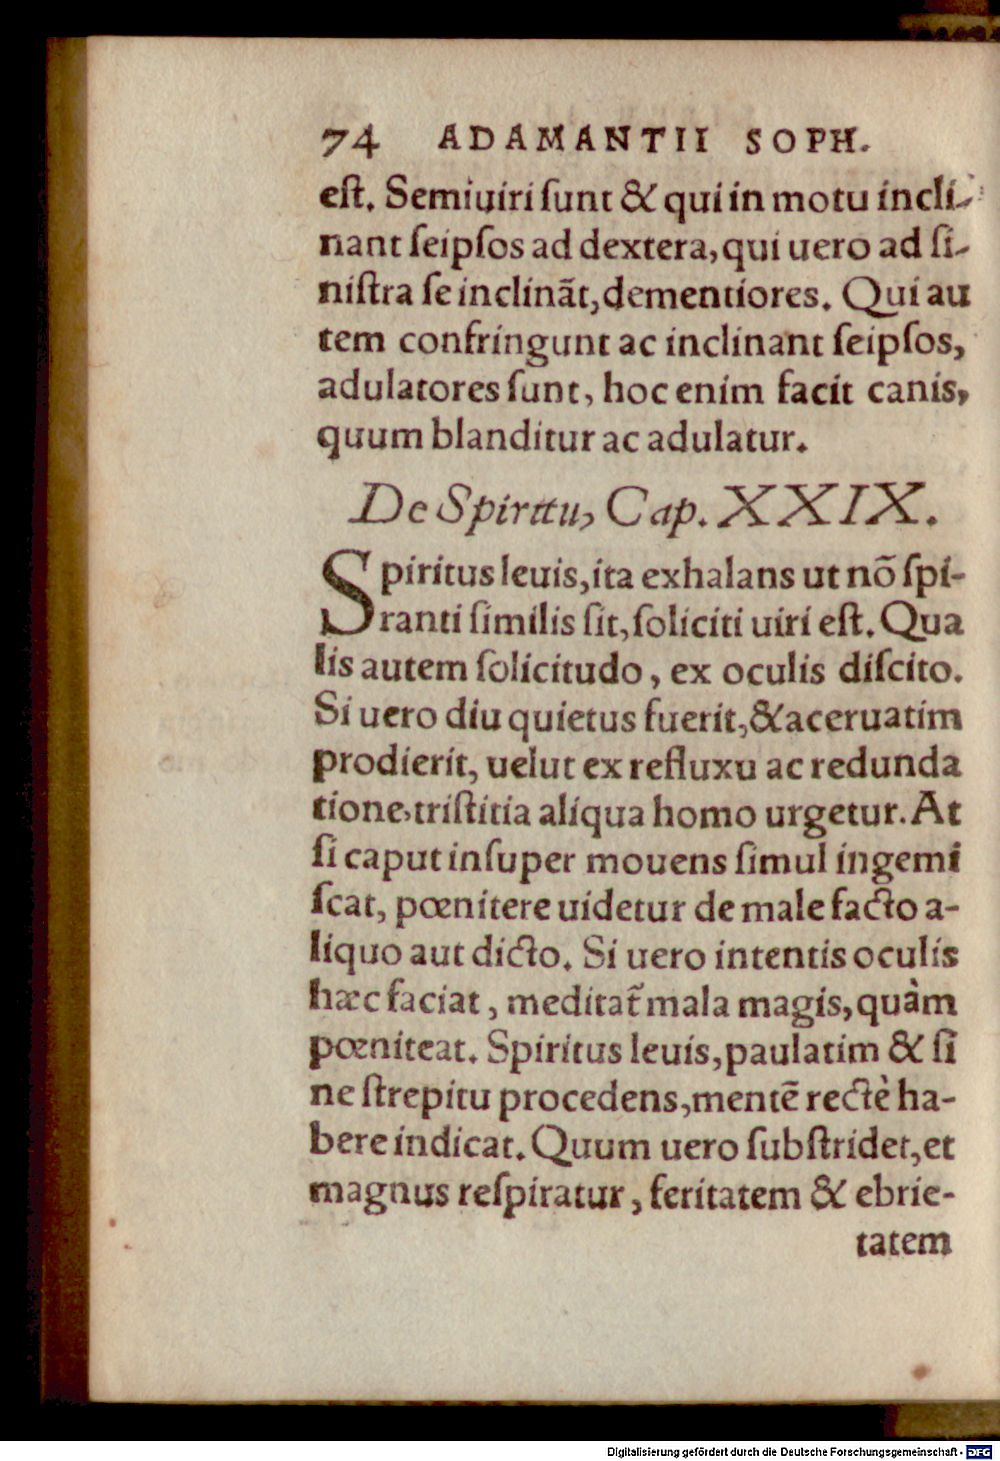 74 ADAMANTII SOPH.
eſt. Semiuiri ſunt & qui in motu incli-
nant ſeipſos ad dextera, qui uero ad ſi-
niſtra ſe inclinãt, dementiores. Qui au
tem confringunt ac inclinant ſeipſos,
adulatores ſunt, hoc enim facit canis,
quum blanditur ac adulatur.
De Spiritu, Cap. XXIX.
Spiritus leuis, ita exhalans ut nõ ſpi-
ranti ſimilis ſit, ſoliciti uiri eſt. Qua
lis autem ſolicitudo, ex oculis diſcito.
Si uero diu quietus fuerit, & aceruatim
prodierit, uelut ex refluxu ac redunda
tione, triſtitia aliqua homo urgetur. At
ſi caput inſuper mouens ſimul ingemi
ſcat, pœnitere uidetur de male facto a-
liquo aut dicto. Si uero intentis oculis
hæc faciat, meditat̃ mala magis, quàm
pœniteat. Spiritus leuis, paulatim & ſi
ne ſtrepitu procedens, mentẽ rectè ha-
bere indicat. Quum uero ſubſtridet, et
magnus reſpiratur, feritatem & ebrie-
tatem
Digitalisierung gefördert durch die Deutsche Forschungsgemeinschaft - DFG